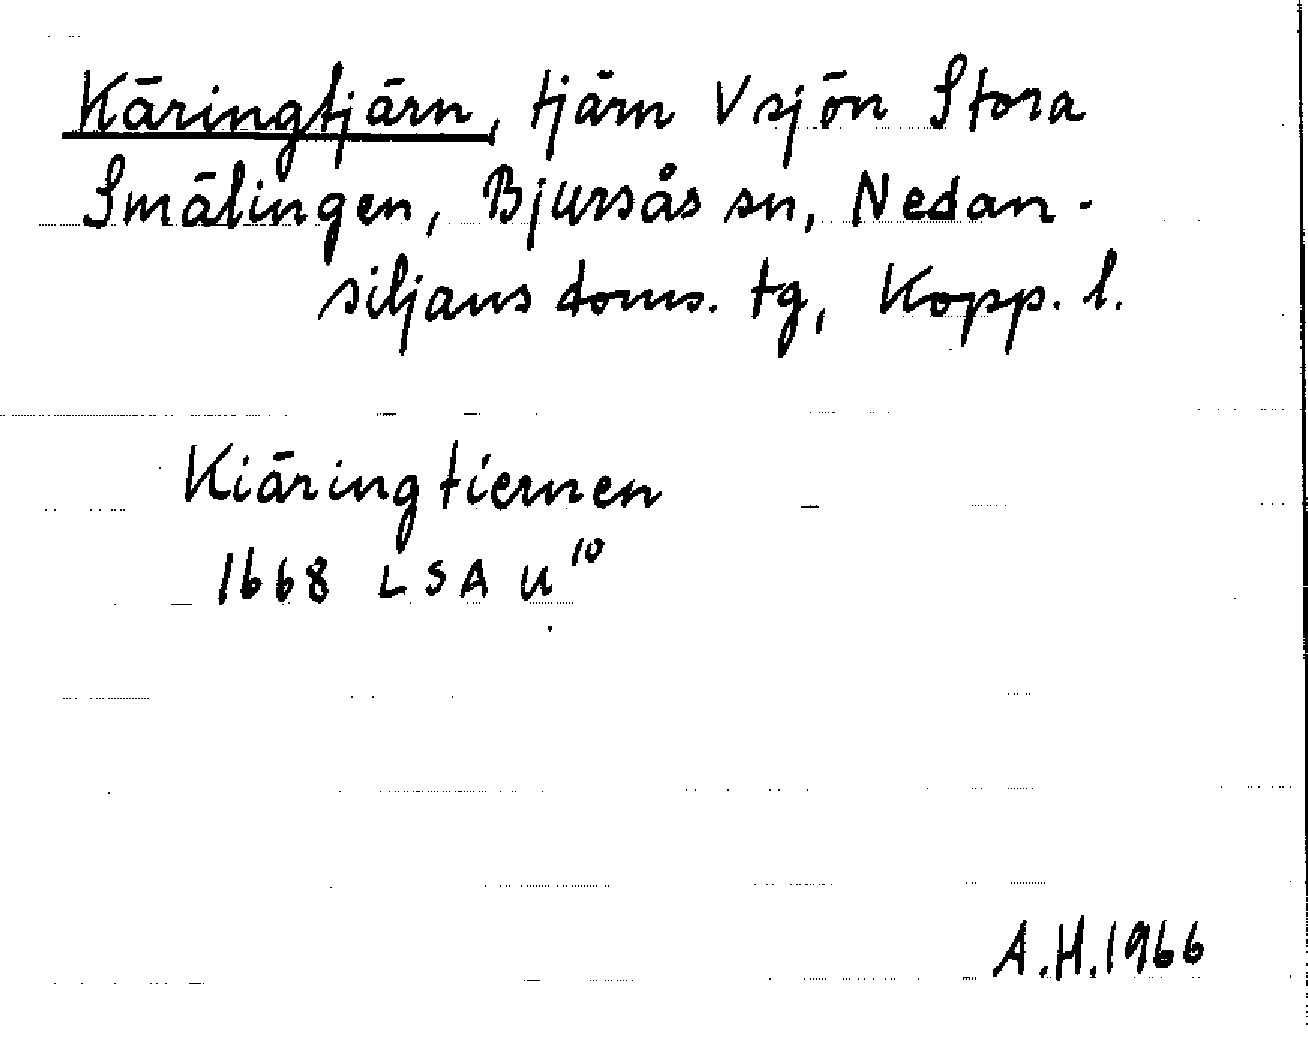 Käringtjärn, tjärn V sjön Stora
Smälingen, Bjursås sn, Nedan-
siljans doms. tg, Kopp. l.
Kiäringtiernen
1668 LSA U¹⁰
A.H. 1966